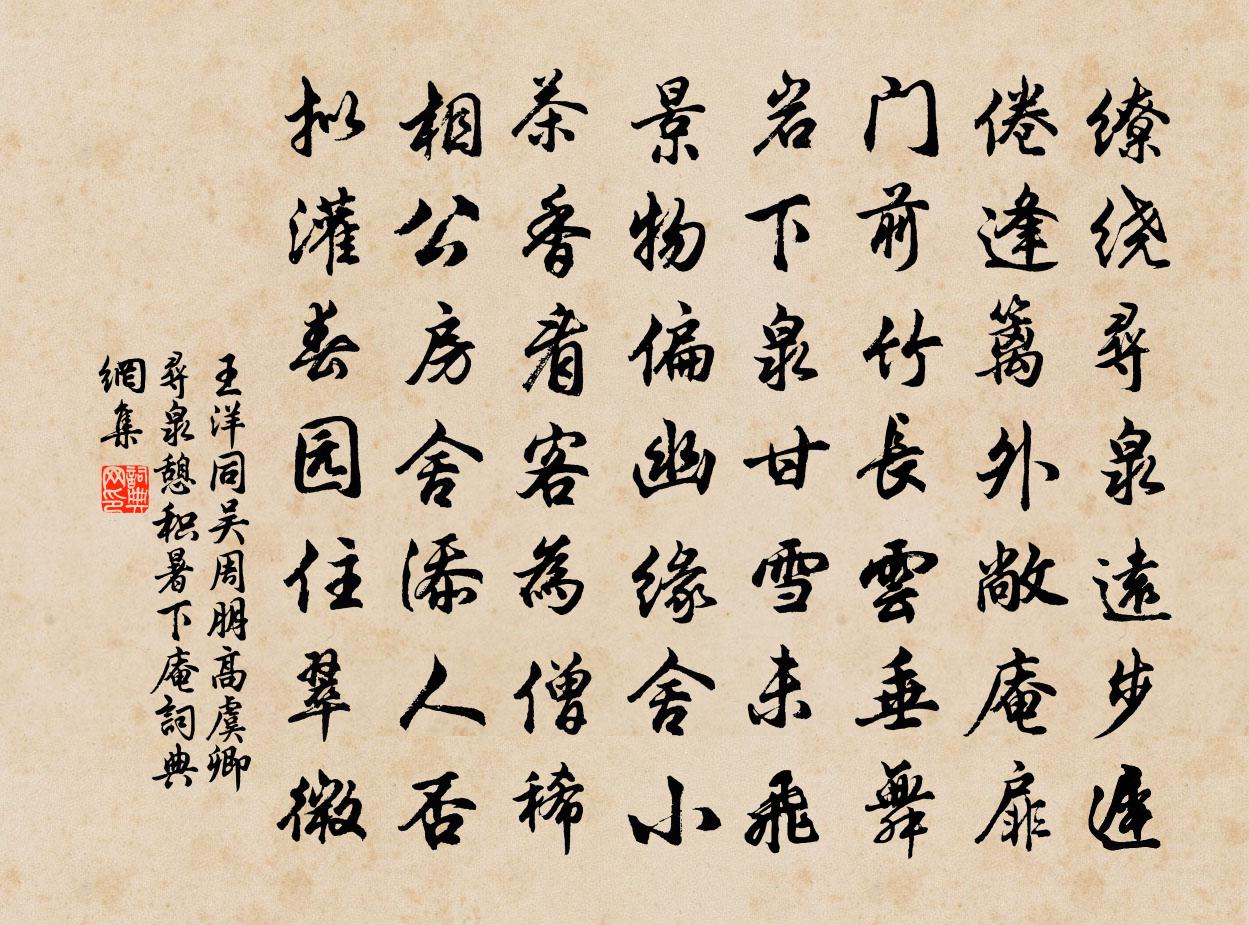 缭绕尋泉遠步遲
倦逢篱外敞庵扉
门前竹長雲垂舞
岩下泉甘雪未飛
景物偏幽缘舍小
茶香看客為僧稀
相公房舍添人否
拟灌春园住翠微
王洋同吴周朋高虞卿
尋泉憩积暑下庵詞典
網集
詞典
网印